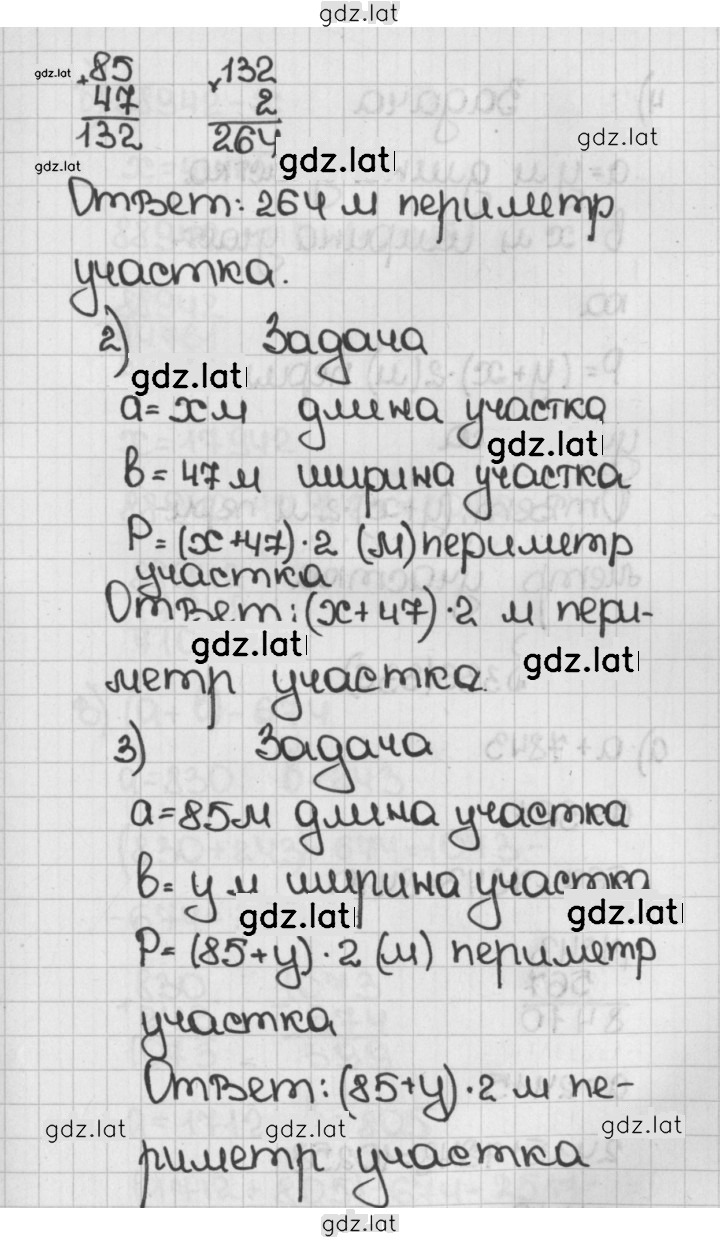 gdz.lat
gdz.lat
+85 ×132
47 2
132 264
gdz.lat
gdz.lat
gdz.lat
Ответ: 264 м периметр
участка.
2) Задача
gdz.lat
a = x м длина участка
gdz.lat
b = 47 м ширина участка
P = (x+47)·2 (м) периметр
участка
Ответ: (x+47)·2 м пери-
gdz.lat
gdz.lat
метр участка
3) Задача
a = 85 м длина участка
b = y м ширина участка
gdz.lat
gdz.lat
P = (85+y)·2 (м) периметр
участка
Ответ: (85+y)·2 м пе-
gdz.lat gdz.lat gdz.lat
риметр участка
gdz.lat